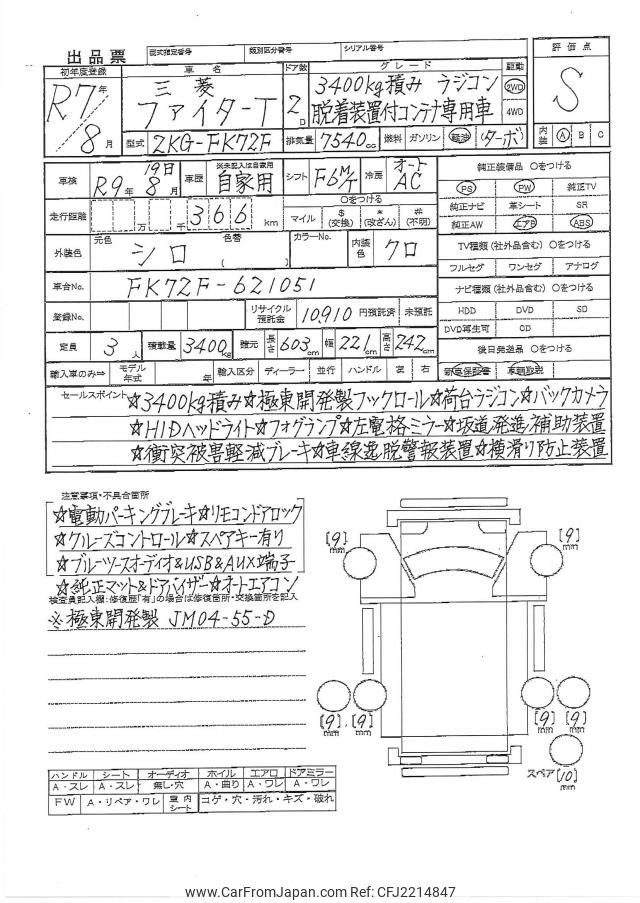 出品票
型式指定番号 類別区分番号 シリアル番号
初年度登録 車名 ドア数 グレード 駆動 評価点
R7年/8月
三菱 ファイターT
2D
3400kg積み ラジコン
脱着装置付コンテナ専用車
2WD
4WD
S
型式 2KG-FK72F 排気量 7540cc 燃料 ガソリン 軽油 (ターボ) 内装 A B C
車検 R9年8月19日 車歴 ※未記入は自家用 自家用 シフト F6M/T 冷房 オートAC
純正装備品 ○をつける
PS PW 純正TV
純正ナビ 革シート SR
純正AW エアB ABS
走行距離 万 千 366 km ○をつける マイル $(交換) *(改ざん) #(不明)
TV種類(社外品含む) ○をつける
フルセグ ワンセグ アナログ
外装色 元色 シロ 色替 ( ) カラーNo. 内装色 クロ
ナビ種類(社外品含む) ○をつける
HDD DVD SD
DVD再生可 CD
車台No. FK72F-621051
登録No. リサイクル預託金 10,910 円預託済 未預託
後日発送品 ○をつける
新車保証書 車輌取説
定員 3人 積載量 3400kg 諸元 長さ 603cm 幅 221cm 高さ 242cm
輸入車のみ⇒ モデル年式 年 輸入区分 ディーラー 並行 ハンドル 左 右
セールスポイント ☆3400kg積み☆極東開発製フックロール☆荷台ラジコン☆バックカメラ
☆HIDヘッドライト☆フォグランプ☆左電格ミラー☆坂道発進補助装置
☆衝突被害軽減ブレーキ☆車線逸脱警報装置☆横滑り防止装置
注意事項・不具合箇所
☆電動パーキングブレーキ☆リモコンドアロック
☆クルーズコントロール☆スペアキー有り
☆ブルーツースオーディオ&USB&AUX端子
☆純正マット&ドアバイザー☆オートエアコン
検査員記入欄:修復歴「有」の場合は修復箇所・交換箇所を記入
※極東開発製 JM04-55-D
[9]mm [9]mm
[9]mm [9]mm [9]mm [9]mm
スペア [10]mm
ハンドル シート オーディオ ホイル エアロ ドアミラー
A・スレ A・スレ 無し・穴 A・曲り A・ワレ A・ワレ
FW A・リペア・ワレ 車内シート コゲ・穴・汚れ・キズ・破れ
www.CarFromJapan.com Ref: CFJ2214847